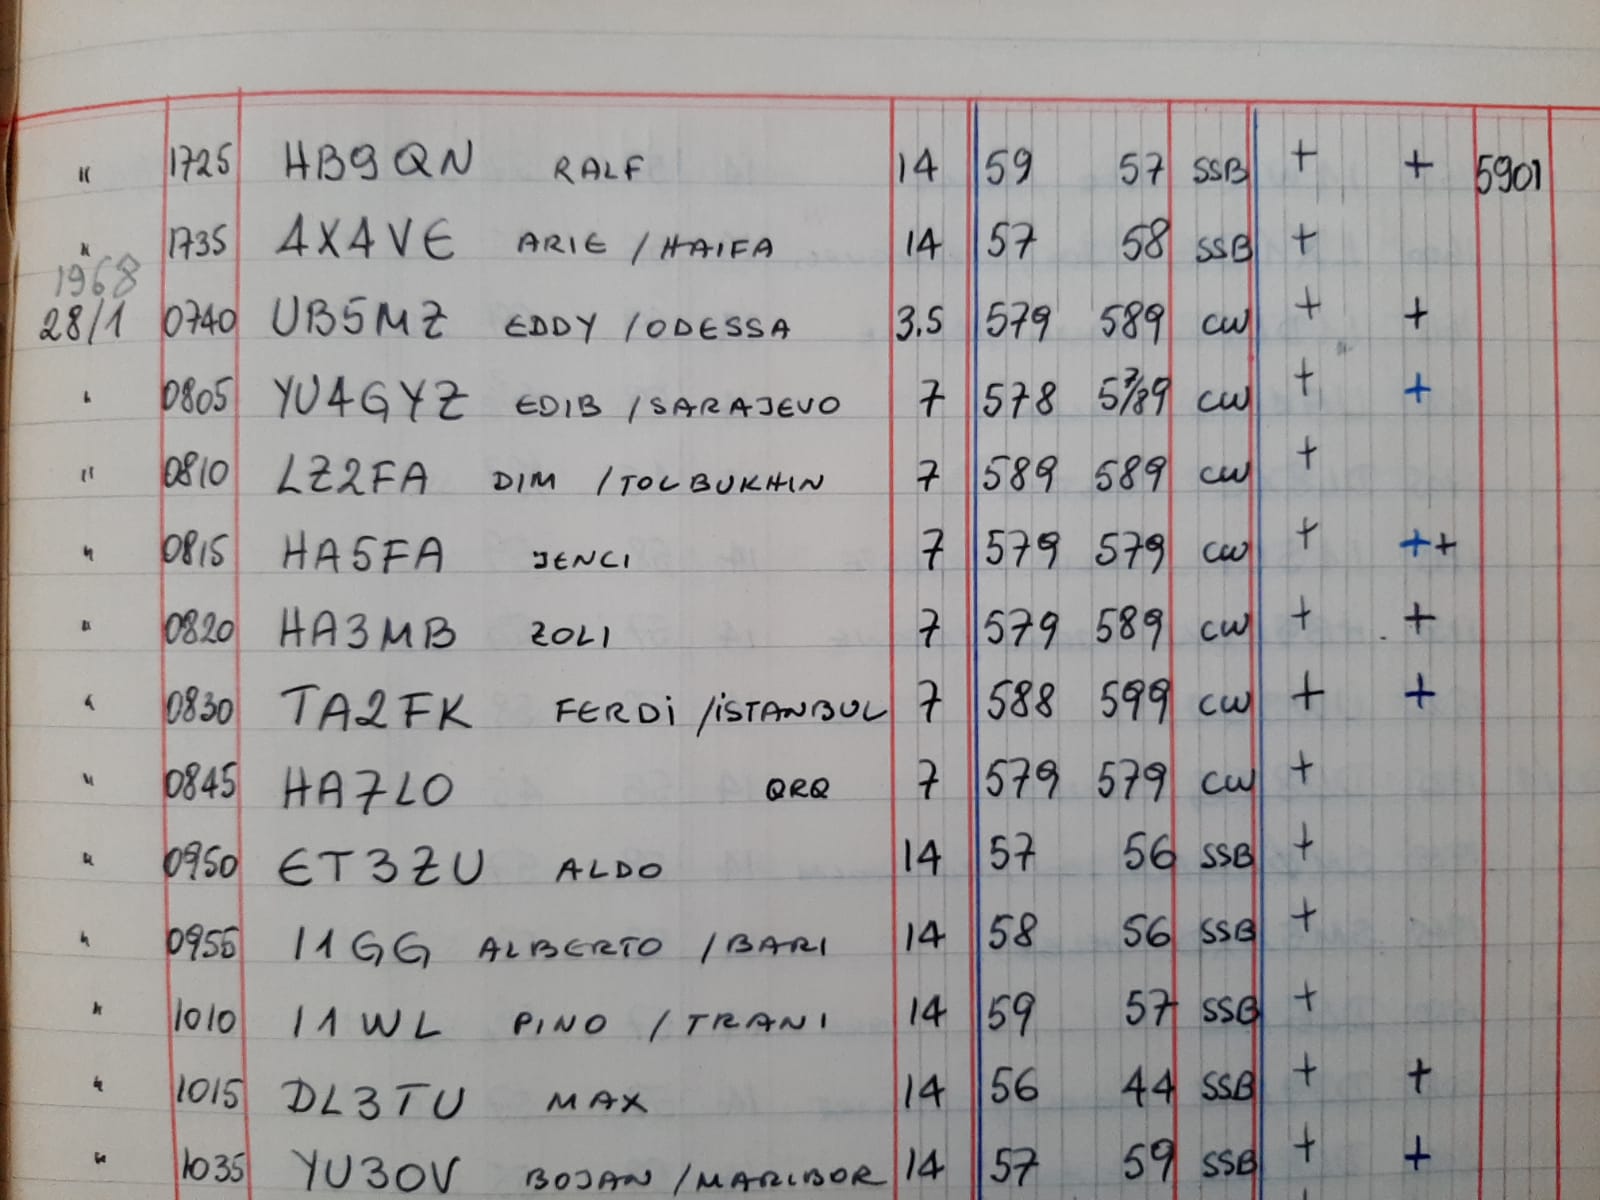 " 1725 HB9QN RALF 14 59 57 SSB + + 5901
" 1735 4X4VE ARIE /HAIFA 14 57 58 SSB +
1968
28/1 0740 UB5MZ EDDY /ODESSA 3.5 579 589 CW + +
" 0805 YU4GYZ EDIB /SARAJEVO 7 578 57/89 CW + +
" 0810 LZ2FA DIM /TOLBUKHIN 7 589 589 CW +
" 0815 HA5FA JENCI 7 579 579 CW + ++
" 0820 HA3MB ZOLI 7 579 589 CW + +
" 0830 TA2FK FERDİ /İSTANBUL 7 588 599 CW + +
" 0845 HA7LO QRQ 7 579 579 CW +
" 0950 ET3ZU ALDO 14 57 56 SSB +
" 0955 I1GG ALBERTO /BARI 14 58 56 SSB +
" 1010 I1WL PINO /TRANI 14 59 57 SSB +
" 1015 DL3TU MAX 14 56 44 SSB + +
" 1035 YU3OV BOJAN /MARIBOR 14 57 59 SSB + +